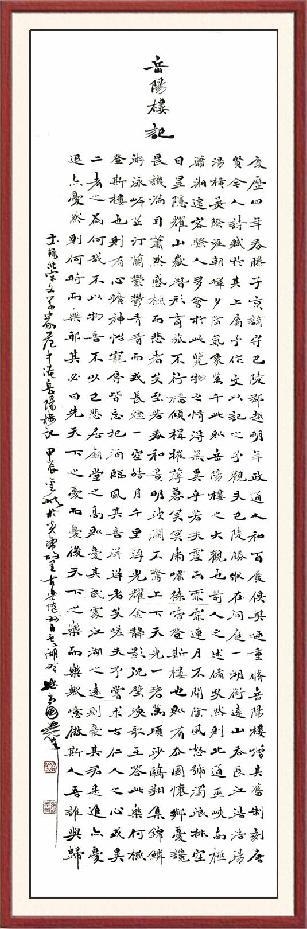 岳陽樓記
慶曆四年春滕子京謫守巴陵郡越明年政通人和百廢俱興乃重修岳陽樓增其舊制刻唐
賢今人詩賦於其上屬予作文以記之予觀夫巴陵勝狀在洞庭一湖銜遠山吞長江浩浩湯
湯橫無際涯朝暉夕陰氣象萬千此則岳陽樓之大觀也前人之述備矣然則北通巫峽南極
瀟湘遷客騷人多會於此覽物之情得無異乎若夫霪雨霏霏連月不開陰風怒號濁浪排空
日星隱耀山嶽潛形商旅不行檣傾楫摧薄暮冥冥虎嘯猿啼登斯樓也則有去國懷鄉憂讒
畏譏滿目蕭然感極而悲者矣至若春和景明波瀾不驚上下天光一碧萬頃沙鷗翔集錦鱗
游泳岸芷汀蘭鬱鬱青青而或長煙一空皓月千里浮光耀金靜影沉璧漁歌互答此樂何極
登斯樓也則有心曠神怡寵辱皆忘把酒臨風其喜洋洋者矣嗟夫予嘗求古仁人之心或異
二者之為何哉不以物喜不以己悲居廟堂之高則憂其民處江湖之遠則憂其君是進亦憂
退亦憂然則何時而樂耶其必曰先天下之憂而憂後天下之樂而樂歟噫微斯人吾誰與歸
文學家范仲淹岳陽樓記 甲辰